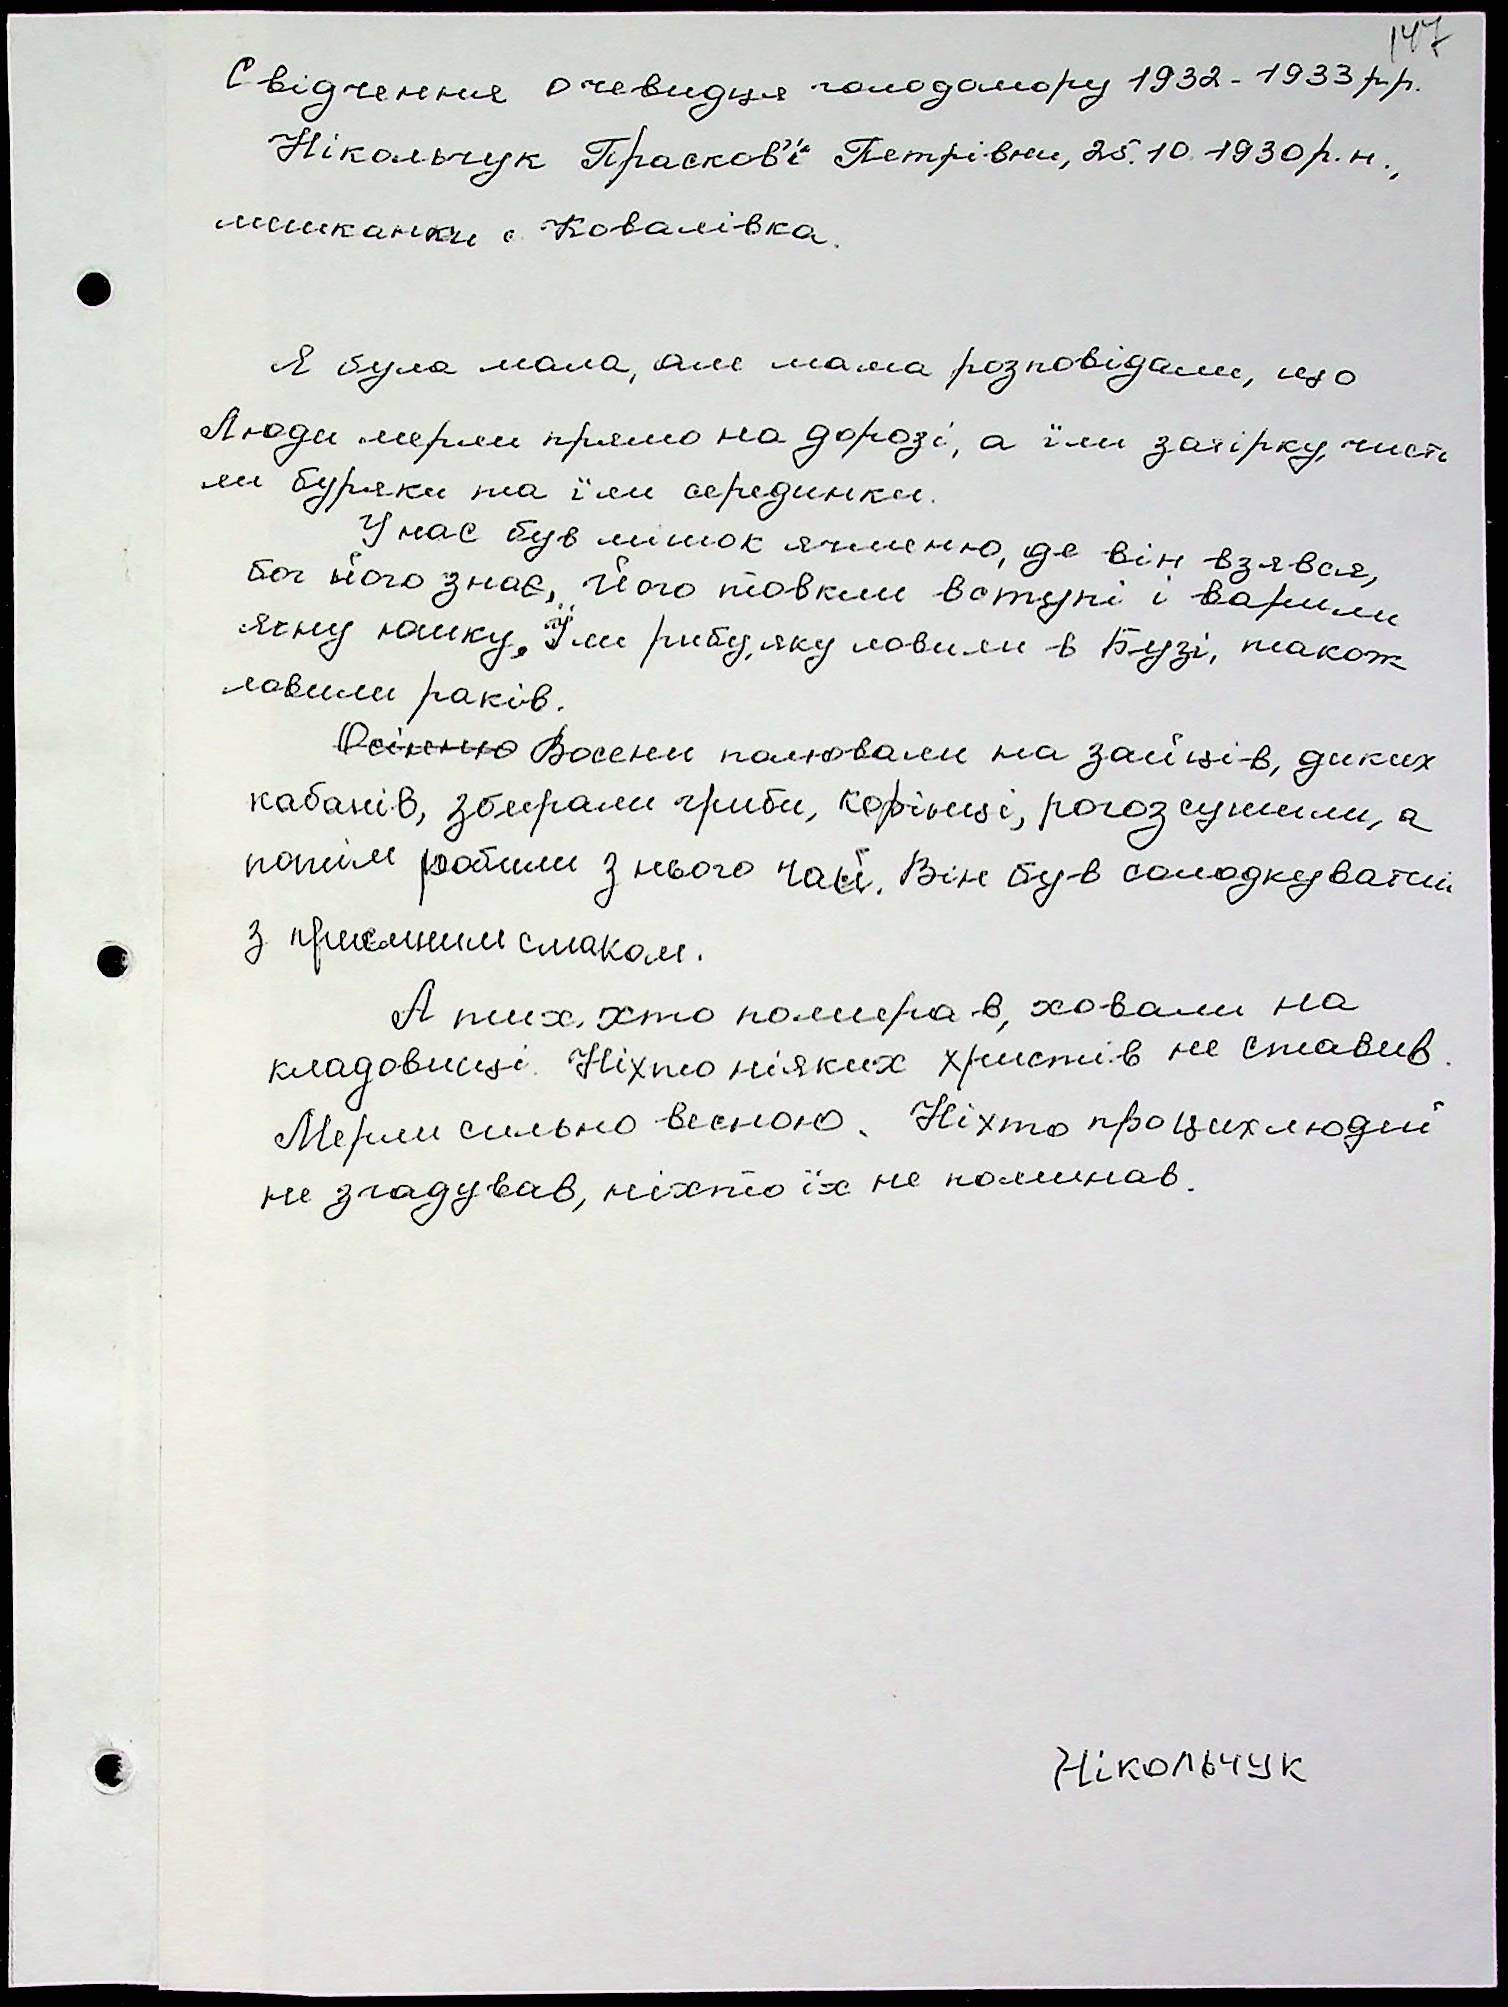 147
Свідчення очевидця голодомору 1932-1933 р.р.
Нікольчук Прасков'ї Петрівни, 25.10.1930 р.н.,
мешканки с. Ковалівка.
Я була мала, але мама розповідали, що
люди мерли прямо на дорозі, а їли затірку, чисти
ли буряки та їли серединки.
У нас був мішок ячменю, де він взявся,
бог його знає, його товкли в ступі і варили
ячну юшку. Їли рибу, яку ловили в Бузі, також
ловили раків.
Осінню Восени полювали на зайців, диких
кабанів, збирали гриби, корінці, рогоз сушили, а
потім робили з нього чай. Він був солодкуватий
з приємним смаком.
А тих, хто помирав, ховали на
кладовищі. Ніхто ніяких хрестів не ставив.
Мерли сильно весною. Ніхто про цих людей
не згадував, ніхто їх не поминав.
Нікольчук